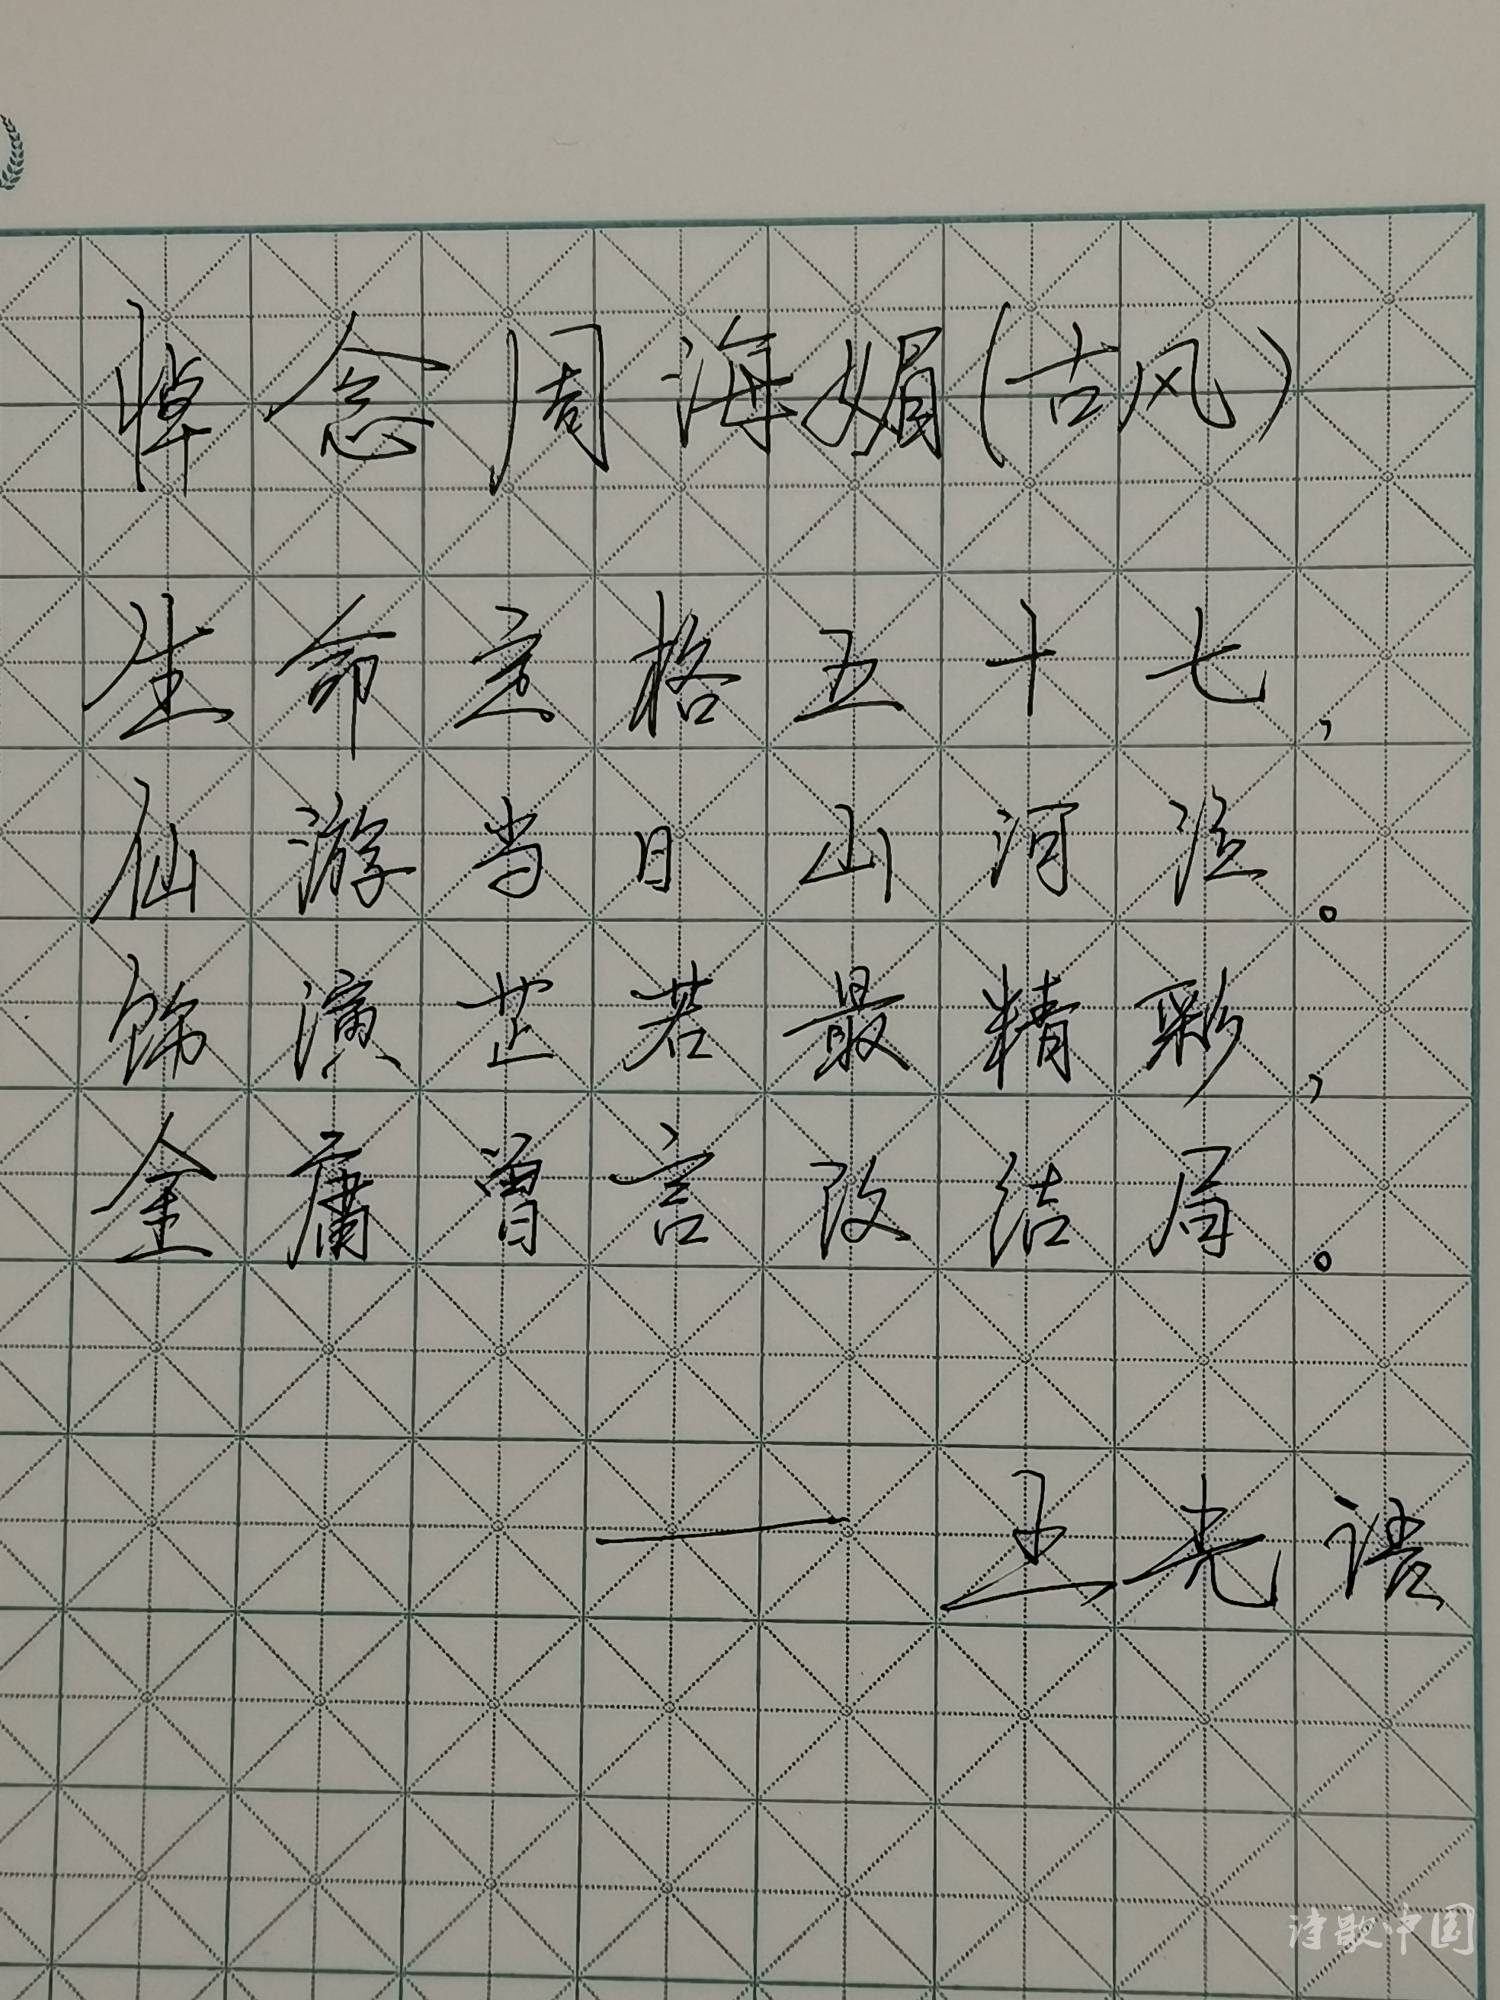 悼念周海媚(古风)
生命定格五十七，
仙游当日山河泣。
饰演芷若最精彩，
金庸曾言改结局。
——王先语
诗歌中国